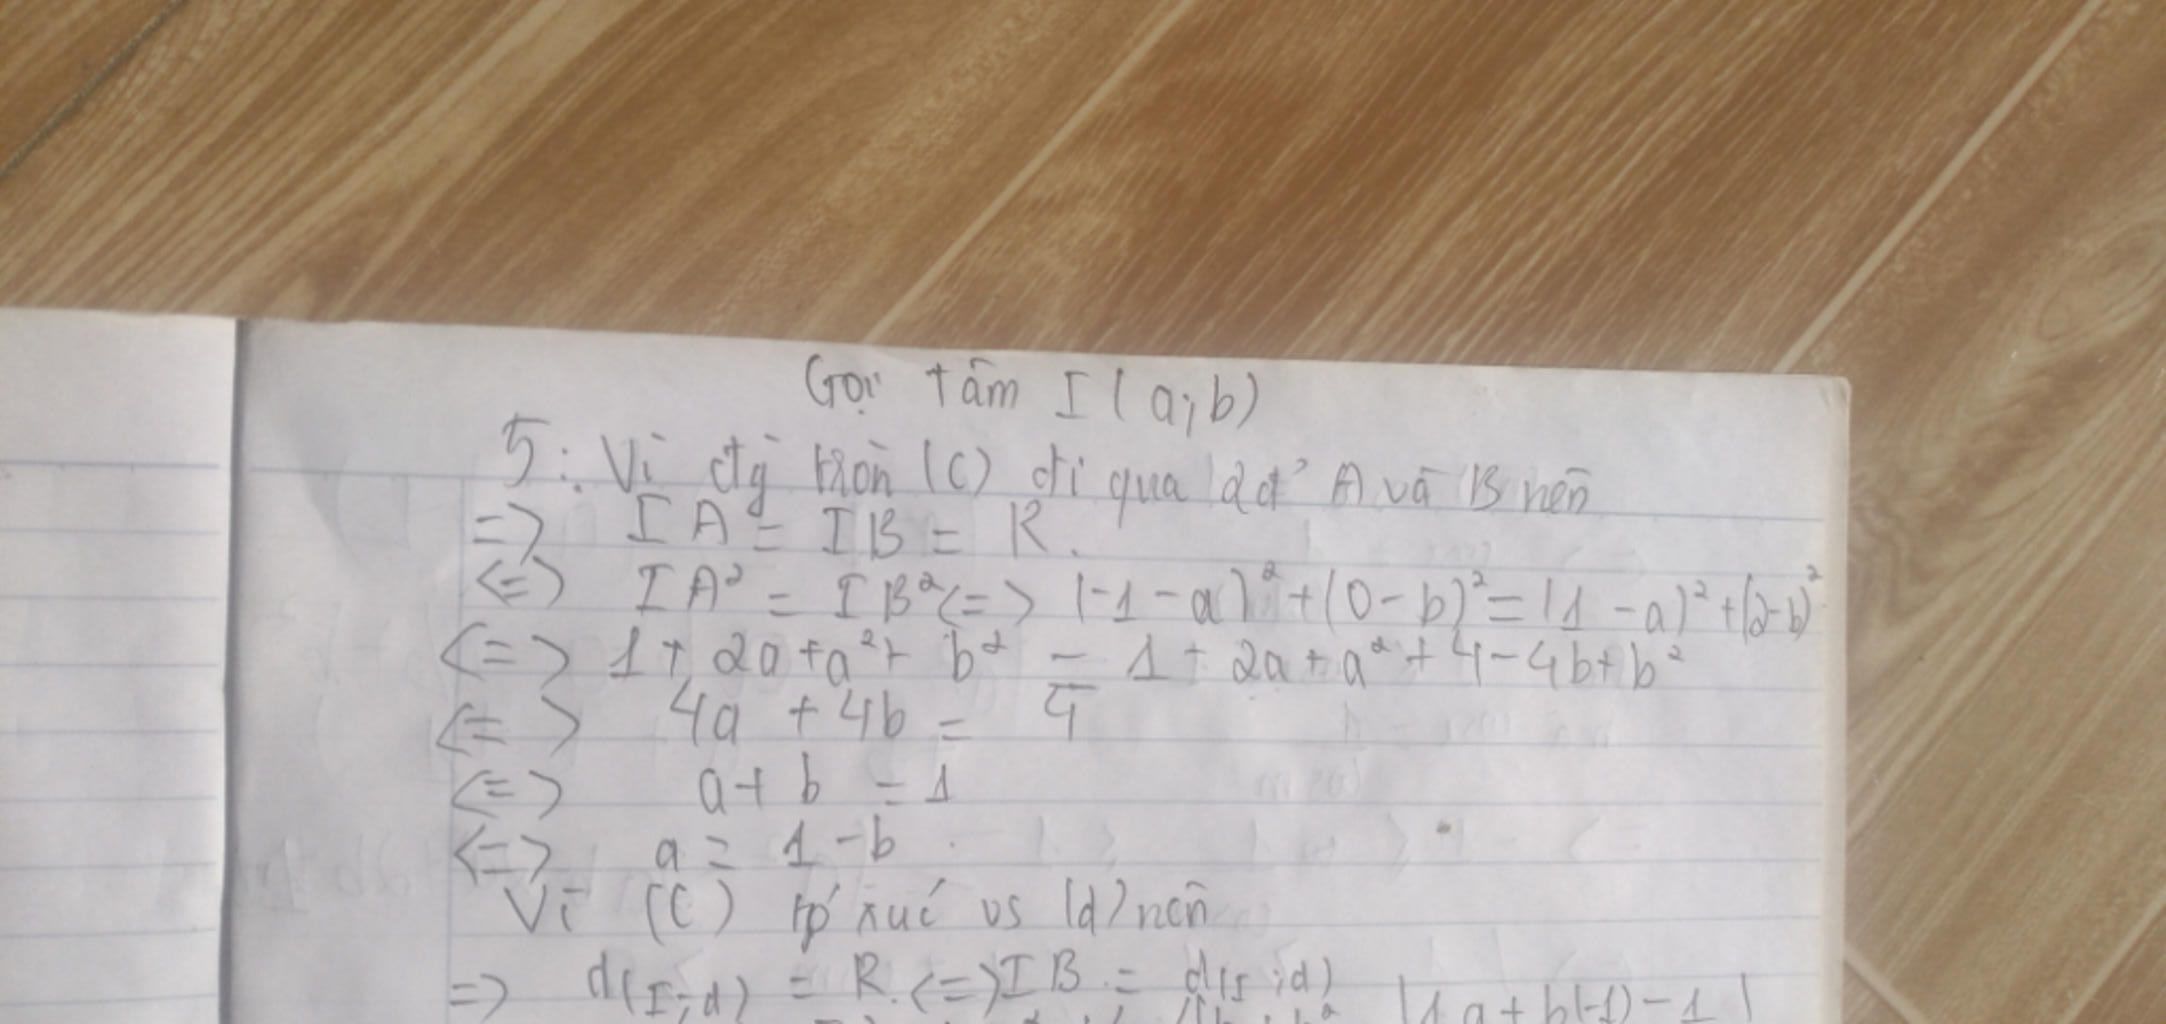 Gọi tâm I(a;b)
5: Vì đtg tròn (C) đi qua 2đ' A và B nên
=> IA = IB = R.
<=> IA² = IB² <=> (-1-a)² + (0-b)² = (1-a)² + (2-b)²
<=> 1 + 2a + a² + b² = 1 - 2a + a² + 4 - 4b + b²
<=> 4a + 4b = 4
<=> a + b = 1
<=> a = 1 - b
Vì (C) tp' xuć vs (d) nên
=> d(I;d) = R. <=> IB = d(I;d)
|1a + b(-1) - 1|